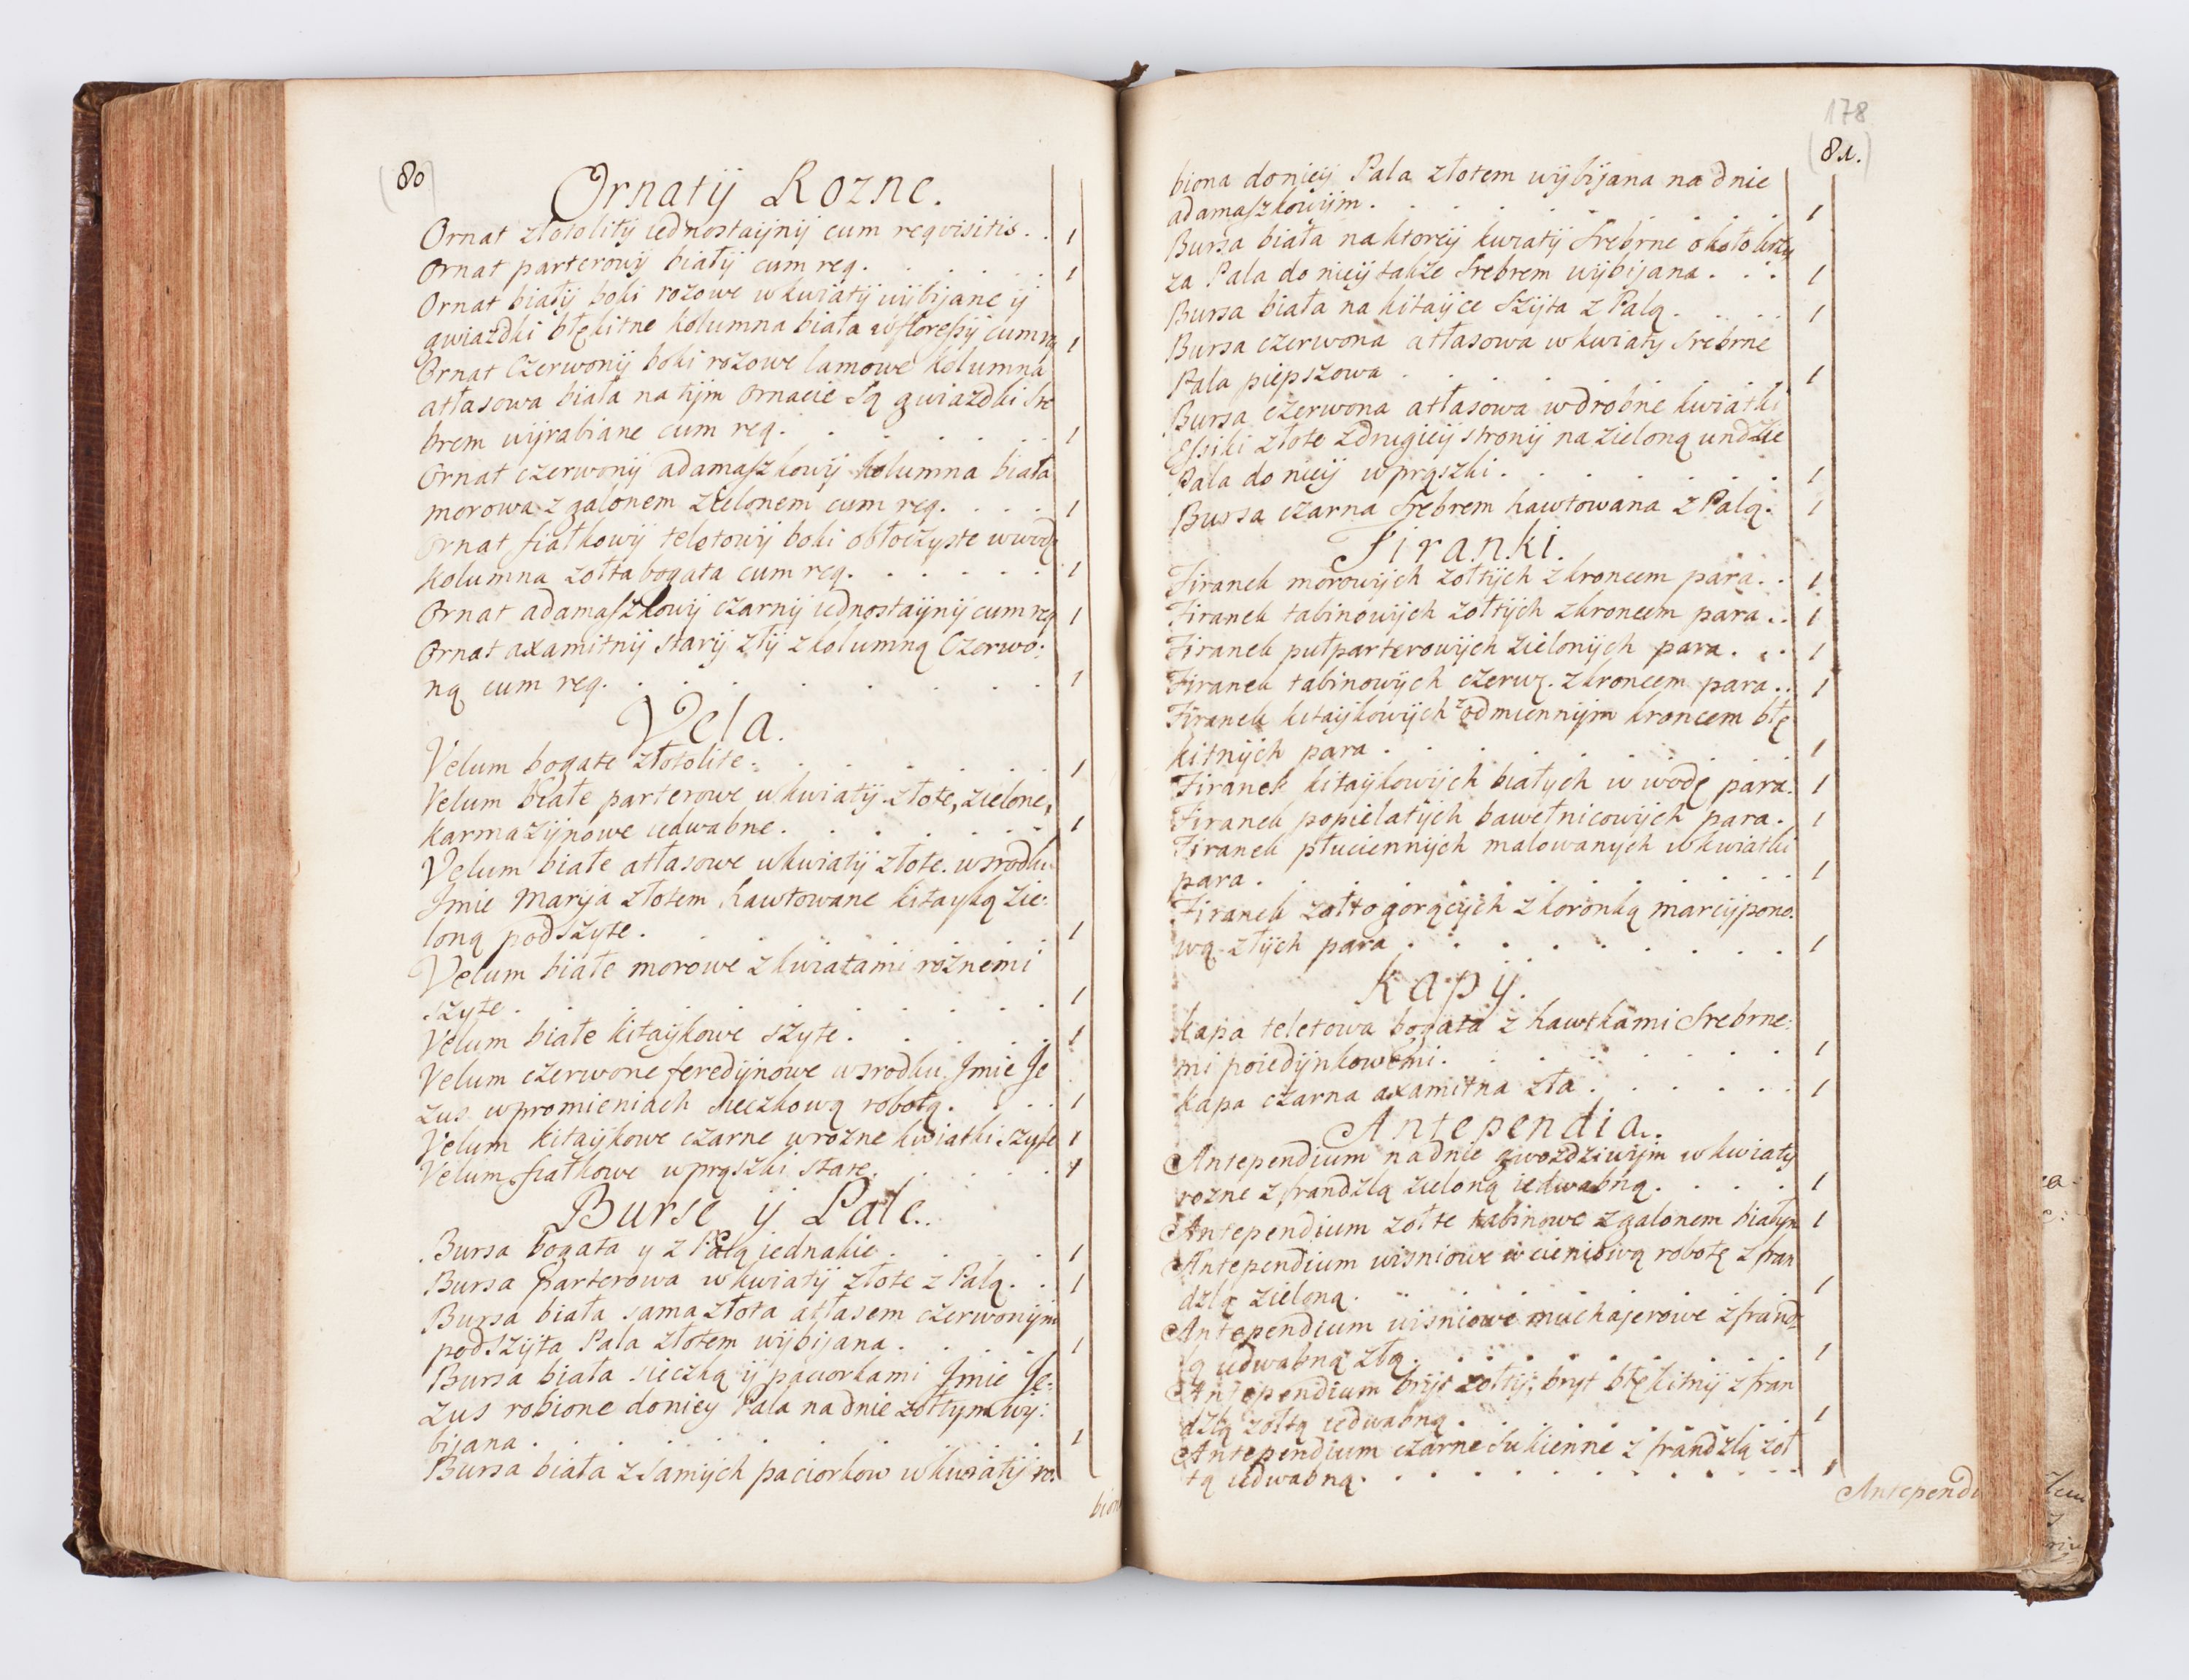 80
Ornatÿ Rozne.
Ornat złotolitÿ iednostaÿnÿ cum reqvisitis. . 1
Ornat parterowÿ białÿ cum req. . . . . . 1
Ornat białÿ boki rozowe w kwiatÿ wÿbijane ÿ
gwiazdki błękitne kolumna biała w floressÿ cum rq 1
Ornat Czerwonÿ boki rozowe lamowe kolumna
atłasowa biała na tÿm ornacie są gwiazdki sre
brem wÿrabiane cum req. . . . . . . 1
Ornat czerwonÿ adamaszkowÿ kolumna biała
morowa z galonem zielonem cum req. . . . . 1
Ornat fiałkowÿ teletowÿ boki obłoczyste w wodę
kolumna zołta bogata cum req. . . . . . 1
Ornat adamaszkowÿ czarnÿ iednostaÿnÿ cum rq 1
Ornat axamitnÿ starÿ złÿ z kolumną Czerwo:
ną cum req. . . . . . . . . 1
Vela.
Velum bogate złotolite. . . . . . . 1
Velum białe parterowe w kwiatÿ złote, zielone,
karmazÿnowe iedwabne. . . . . . 1
Velum białe atłasowe w kwiatÿ złote. w srodku
Jmie Marÿa złotem hawtowane kitayką zie:
loną podszyte. . . . . . . . 1
Velum białe morowe z kwiatami roznemi
szyte. . . . . . . . . . 1
Velum białe kitaÿkowe szyte. . . . . . 1
Velum czerwone feredÿnowe w srodku Jmie Je
zus w promieniach sieczkową robotą. . . . 1
Velum kitaÿkowe czarne w rozne kwiatki szyte 1
Velum fiałkowe w prąszki stare. . . . . 1
Burse ÿ Pale.
Bursa bogata y z Palą jednakie. . . . . 1
Bursa parterowa w kwiatÿ złote z Palą. . 1
Bursa biała sama złota atłasem czerwonÿm
podszÿta Pala złotem wÿbijana. . . . . 1
Bursa biała sieczką ÿ paciorkami Jmie Je:
zus robione do niey Pala na dnie zołtym wÿ:
bijana. . . . . . . . . . 1
Bursa biała z samÿch paciorkow w kwiatÿ ro:
bion
178
81.
biona do nieÿ Pala złotem wÿbijana na dnie
adamaszkowÿm. . . . . . . . . 1
Bursa biała na ktoreÿ kwiatÿ srebrne około
za Pala do nieÿ takze srebrem wÿbijana. . . 1
Bursa biała na kitaÿce szÿta z Palą. . . . 1
Bursa czerwona atłasowa w kwiaty srebrne
Pala piepszowa . . . . . . . . 1
Bursa czerwona atłasowa w drobne kwiatki
Essiki złote z drugieÿ stronÿ na zieloną undzie
Pala do nieÿ w prąszki. . . . . . . 1
Bursa czarna srebrem hawtowana z Palą. 1
Firanki.
Firanek morowÿch zołtÿch z kroncem para. . 1
Firanek tabinowÿch zołtÿch z kroncem para. . 1
Firanek pułparterowÿch zielonÿch para. . . 1
Firanek tabinowÿch czerw. z kroncem para. . 1
Firanek kitaÿkowÿch z odmiennÿm kroncem błę
kitnÿch para . . . . . . . . . 1
Firanek kitaÿkowÿch białych w wodę para. 1
Firanek popielatÿch bawełnicowÿch para. . 1
Firanek płuciennÿch malowanych w kwiatki
para. . . . . . . . . . . 1
Firanek zołtogorącÿch z koronką marcÿpono:
wą złÿch para . . . . . . . . . 1
Kapÿ.
Kapa teletowa bogata z hawtkami srebrne:
mi poiedÿnkowemi. . . . . . . . 1
Kapa czarna axamitna zła. . . . . . 1
Antependia.
Antependium na dnie gwozdziwÿm w kwiaty
rozne z frandzlą zieloną iedwabną. . . . . 1
Antependium zołte tabinowe z galonem białym 1
Antependium wisniowe w cieniową robotę z fran
dzlą zieloną. . . . . . . . . . 1
Antependium wisniowe muchajerowe z frandz:
lą iedwabną złą. . . . . . . . . 1
Antependium brÿt zołtÿ, bryt błękitnÿ z fran
dzlą zołtą iedwabną. . . . . . . . 1
Antependium czarne sukienne z frandzlą zoł
tą iedwabną. . . . . . . . . . 1
Antependi